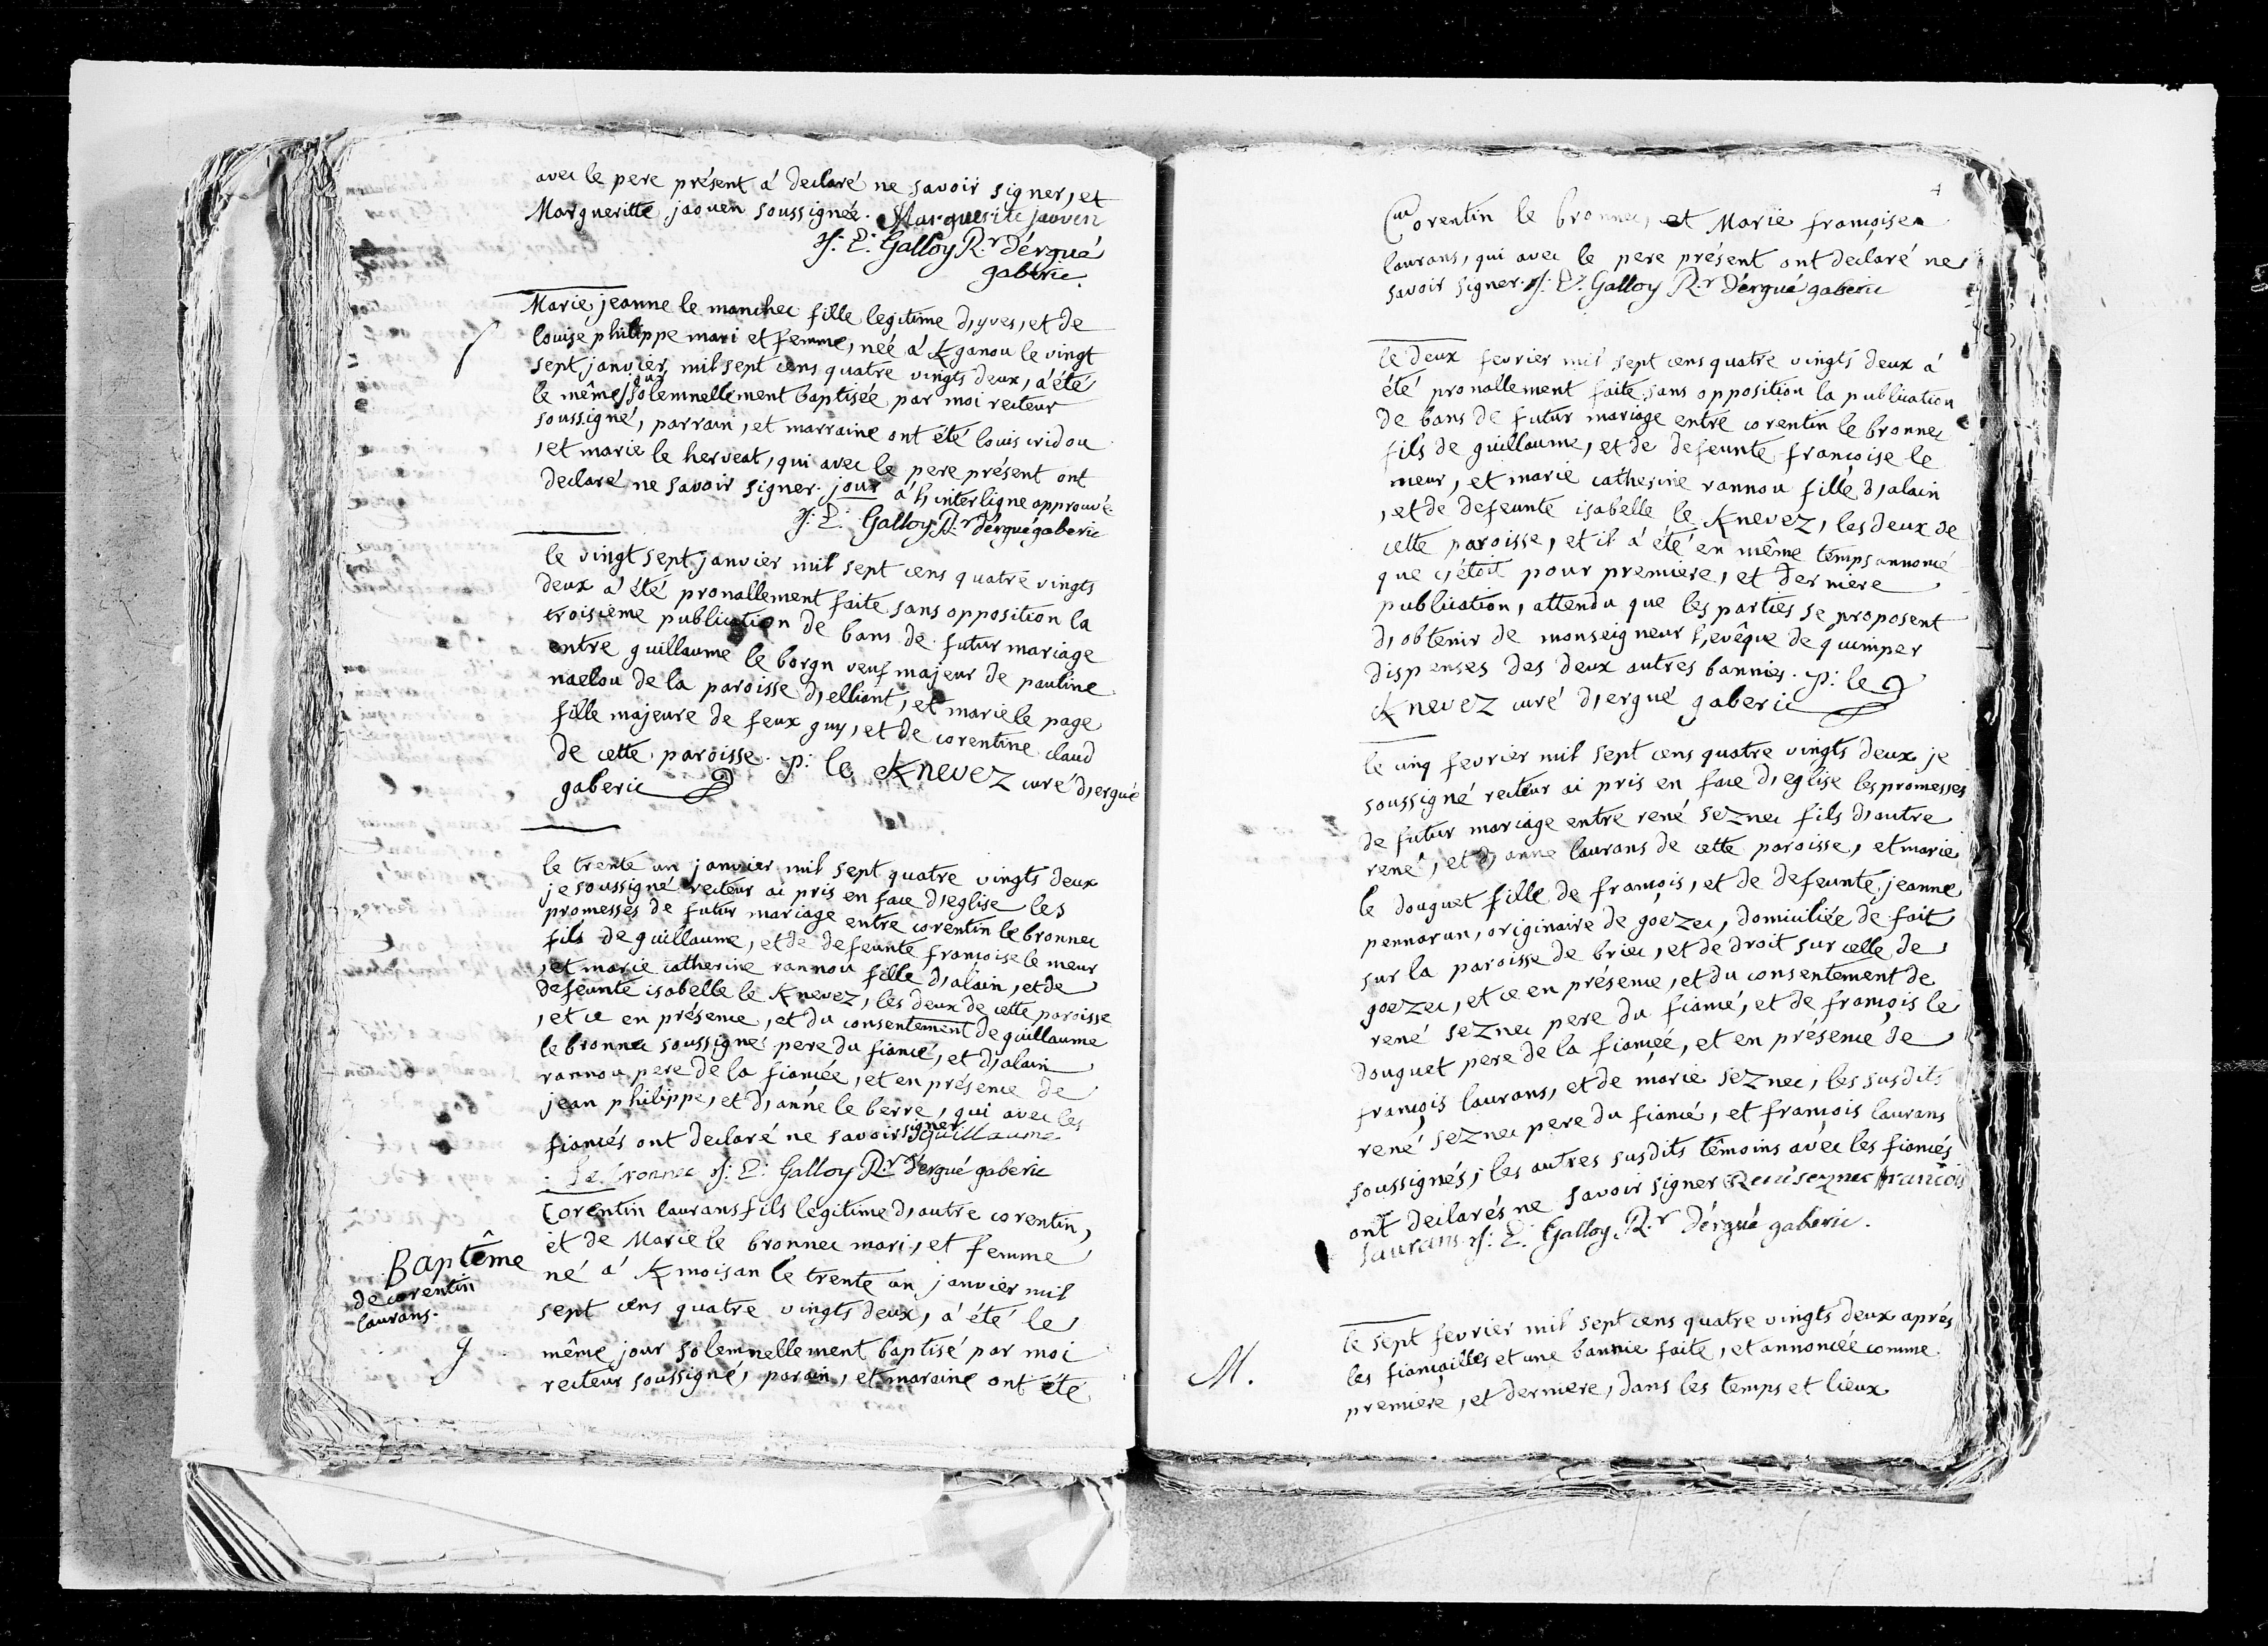 avec le pere présent á declaré ne savoir signer, et
Margueritte jaouen soussignée. Marguerite jaouen
J: E: Galloy R.r d'érgué
gaberic.
Marie jeanne le manchec fille legitime d,yves, et de
louise philippe mari et femme, née á Kganou le vingt
sept janvier, mil sept cens quatre vingts deux, á été
le même jour solemnellement baptisée par moi recteur
soussigné, parrain, et marraine ont été louis cridou
, et marie le herveat, qui avec le pere présent ont
declaré ne savoir signer. jour á l,interligne approuvé
J: E: Galloy R.r d'érgué gaberic
le vingt sept janvier mil sept cens quatre vingts
deux á été pronallement faite sans opposition la
troisieme publication de bans de futur mariage
entre guillaume le borgn veuf majeur de pauline
naelou de la paroisse d,elliant, et marie le page
fille majeure de feux guy, et de corentine claud
de cette paroisse. p: le Knevez curé d,ergué
gaberic
le trente un janvier mil sept quatre vingts deux
je soussigné recteur ai pris en face d,eglise les
promesses de futur mariage entre corentin le bronnec
fils de guillaume, et de defeunte françoise le meur
, et marie catherine rannou fille d,alain, et de
defeunte isabelle le Knevez, les deux de cette paroisse
, et ce en présence, et du consentement de guillaume
le bronnec soussigné pere du fiancé, et d,alain
rannou pere de la fiancée, et en présence de
jean philippe, et d,anne le berre, qui avec les
fiancés ont declaré ne savoir signer guillaume
Le bronnec J: E: Galloy R.r d'érgué gaberic
Baptême
de corentin
laurans.
9
Corentin laurans fils legitime d,autre corentin,
et de Marie le bronnec mari, et femme
né á Kmoisan le trente un janvier mil
sept cens quatre vingts deux, á été le
même jour solemnellement baptisé par moi
recteur soussigné, parain, et maraine ont été
4
Corentin le bronnec, et Marie françoise
laurans, qui avec le pere présent ont declaré ne
savoir signer. J: E: Galloy R.r d'érgué gaberic
le deux fevrier mil sept cens quatre vingts deux á
été pronallement faite sans opposition la publication
de bans de futur mariage entre corentin le bronnec
fils de guillaume, et de defeunte françoise le
meur, et marie catherine rannou fille d,alain
, et de defeunte isabelle le Knevez, les deux de
cette paroisse, et il á été en même temps annoncé
que c,étoit pour premiere, et derniere
publication, attendu que les parties se proposent
d,obtenir de monseigneur l,evêque de quimper
dispenses des deux autres bannies. p: le
Knevez curé d,ergué gaberic
le cinq fevrier mil sept cens quatre vingts deux je
soussigné recteur ai pris en face d,eglise les promesses
de futur mariage entre rené seznec fils d,autre
rené, et d,anne laurans de cette paroisse, et marie
le douguet fille de françois, et de defeunte jeanne
pennarun, originaire de goezec, domiciliée de fait
sur la paroisse de briec, et de droit sur celle de
goezec, et ce en présence, et du consentement de
rené seznec pere du fiancé, et de françois le
douguet pere de la fiancée, et en présence de
françois laurans, et de marie seznec, les susdits
rené seznec pere du fiancé, et françois laurans
soussignés, les autres susdits têmoins avec les fiancés
ont declarés ne savoir signer René seznec francois
laurans. J: E: Galloy R.r d'érgué gaberic.
M.
le sept fevrier mil sept cens quatre vingts deux aprés
les fiançailles et une bannie faite, et annoncée comme
premiere, et derniere, dans les temps et lieux